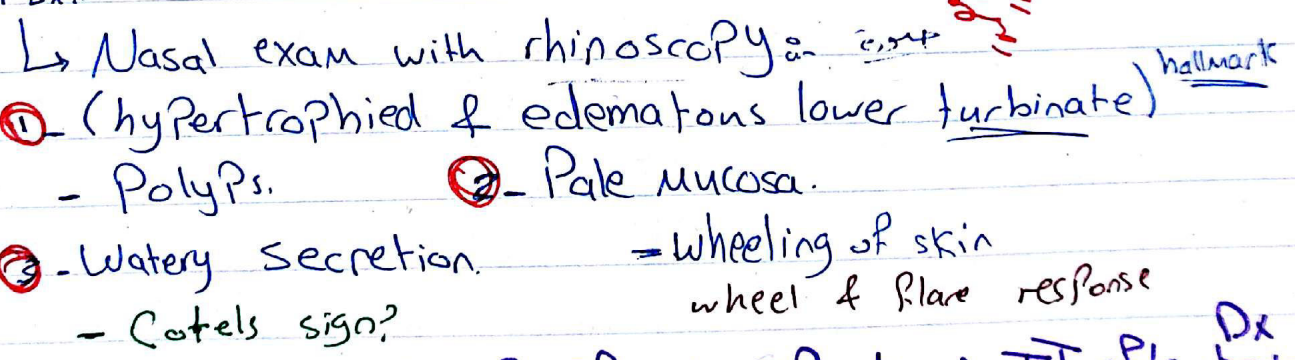 ↳ Nasal exam with rhinoscopy:-
hallmark
① - (hypertrophied & edematous lower turbinate)
- Polyps. ② - Pale mucosa.
③ - Watery secretion. - wheeling of skin
wheel & flare response
- Cotels sign?
Dx